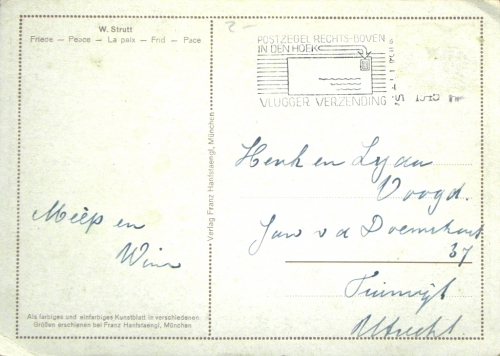 W. Strutt
Friede — Peace — La paix — Frid — Pace
2-
POSTZEGEL RECHTS-BOVEN
IN DEN HOEK
VLUGGER VERZENDING
Verlag Franz Hanfstaengl, München
Henk en Lyda
Voogd.
Jan v d Doemshart
37
Tuinwijk
Utrecht.
Miep en
Wim
Als farbiges und einfarbiges Kunstblatt in verschiedenen
Größen erschienen bei Franz Hanfstaengl, München